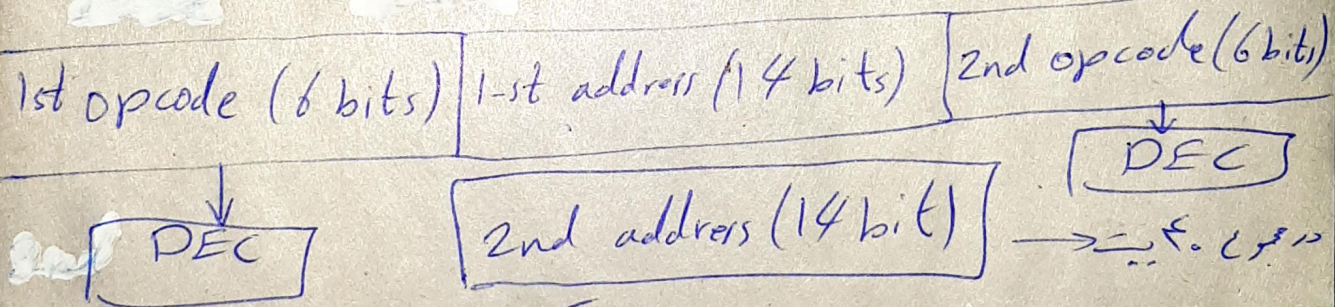 1st opcode (6 bits) 1-st address (14 bits) 2nd opcode (6 bits)
DEC
DEC 2nd address (14 bit) در مجموع ۴۰ بیت